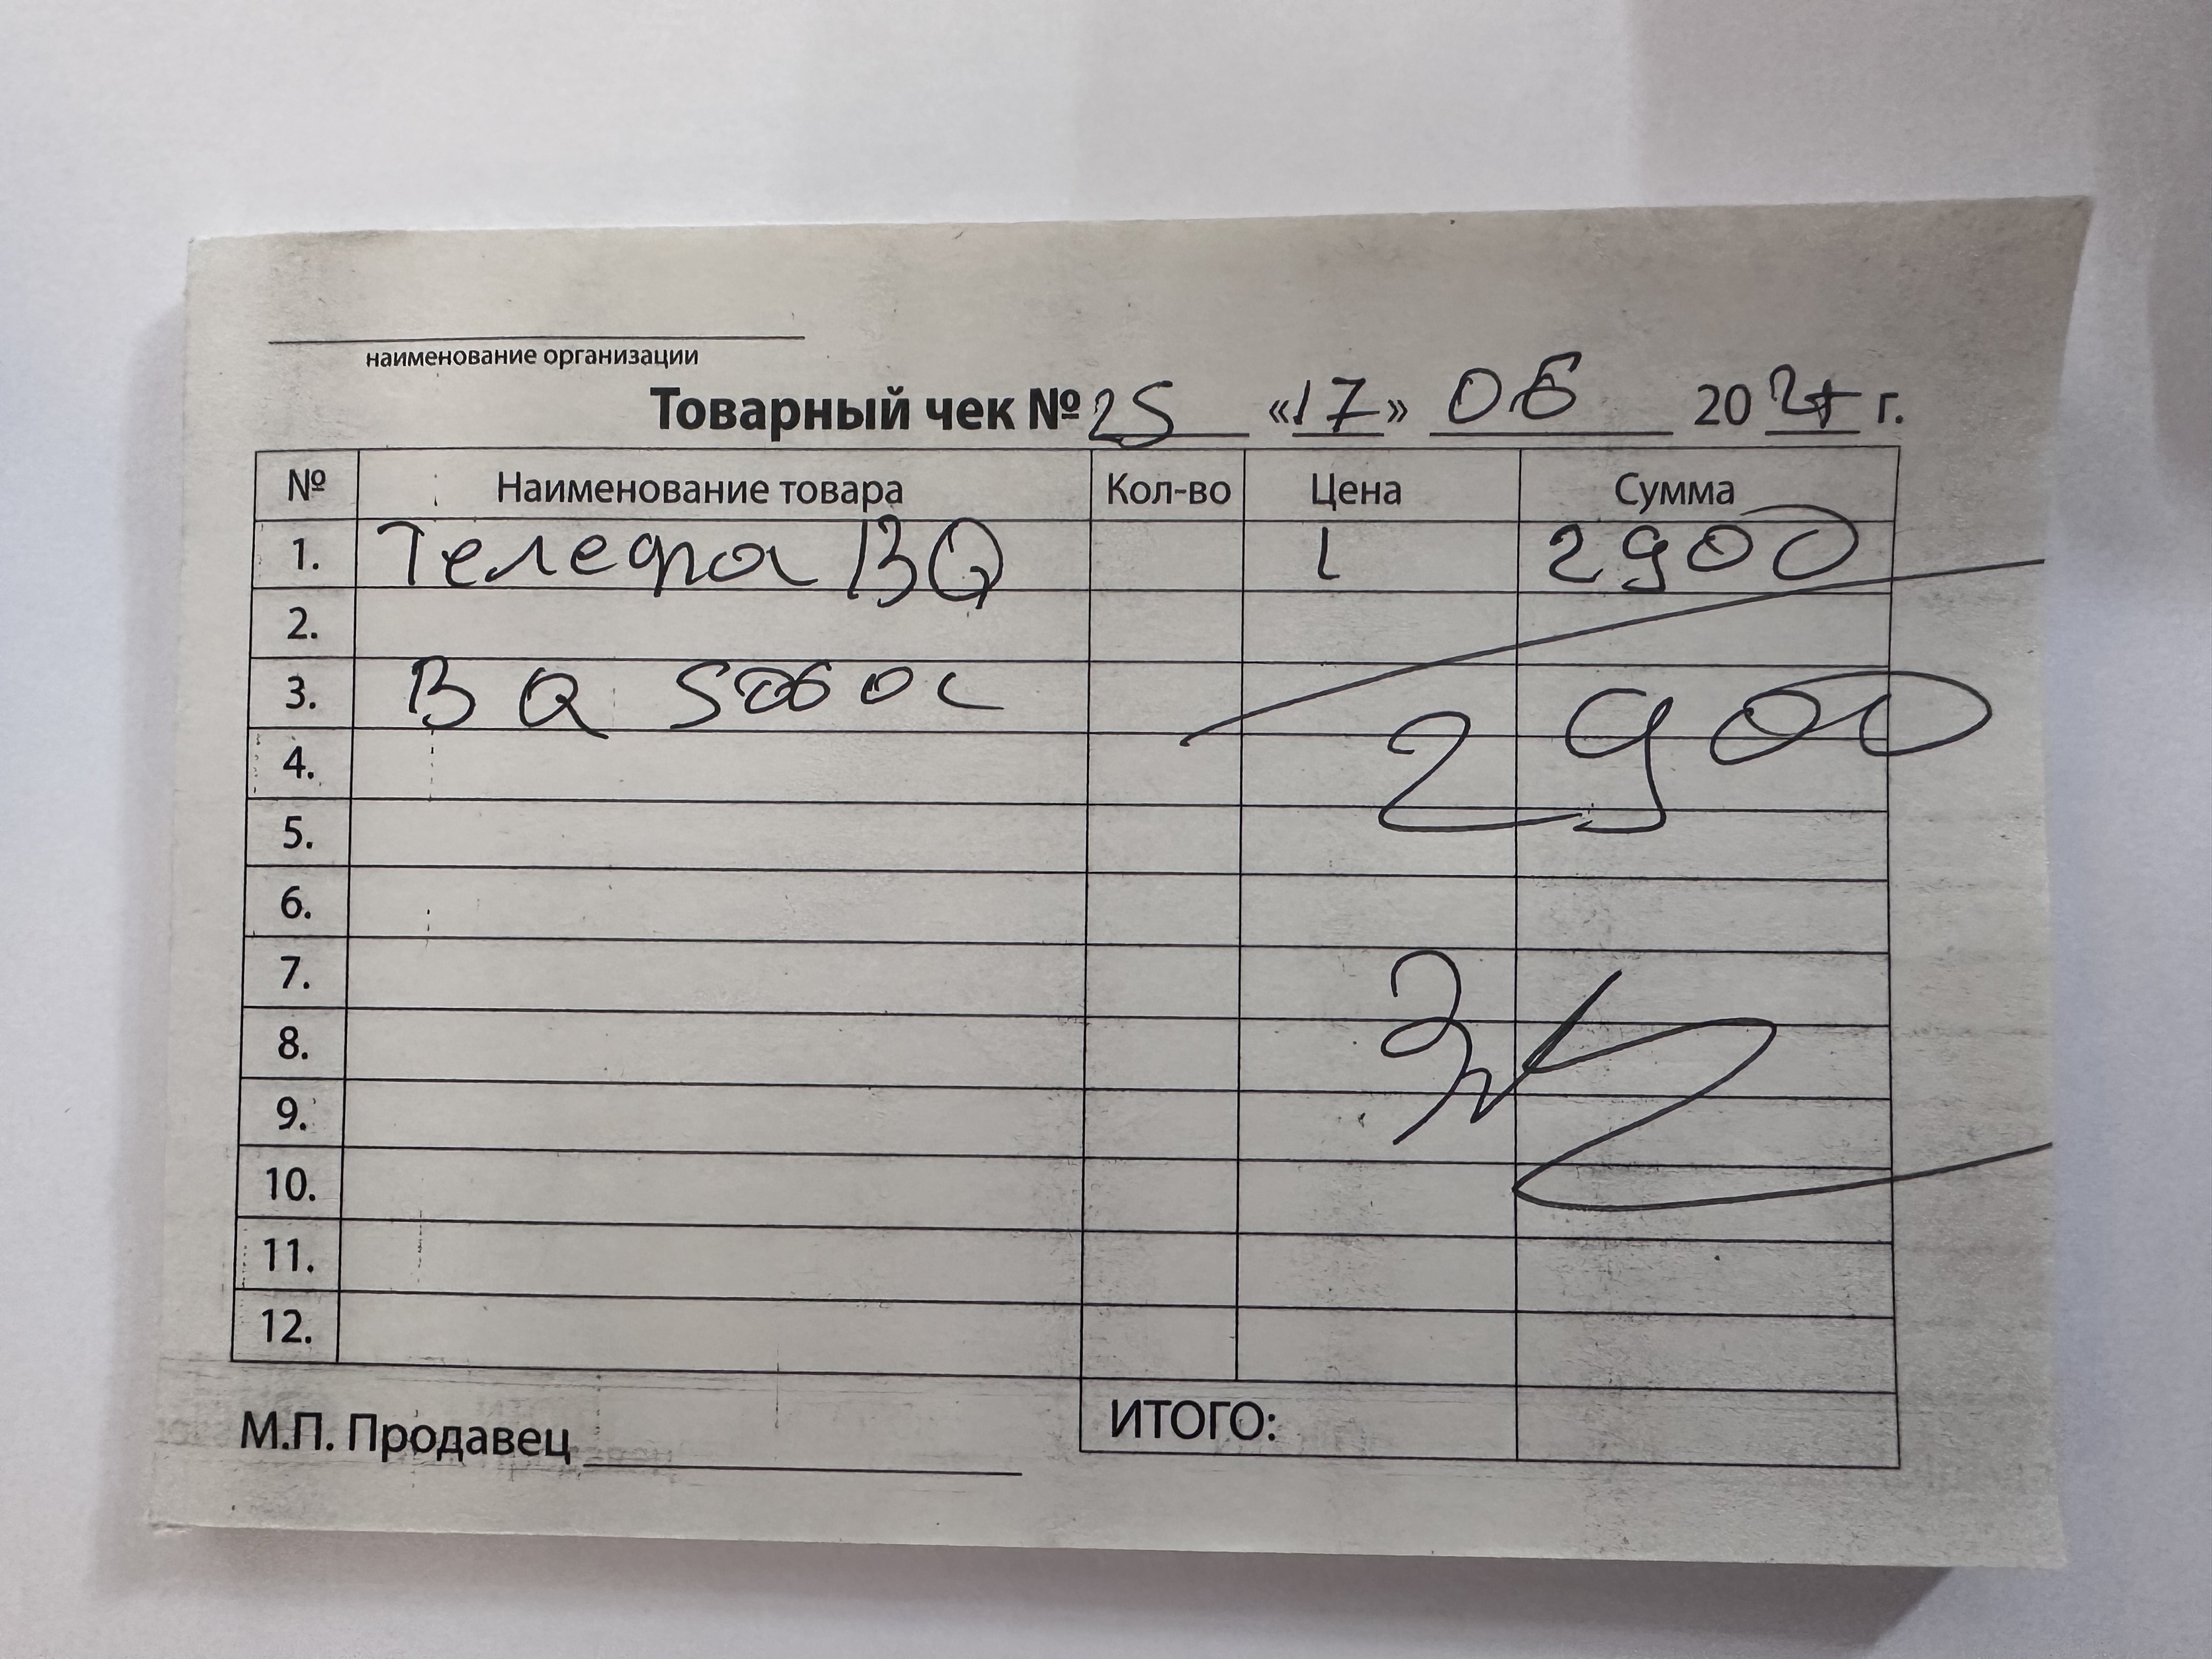 наименование организации
Товарный чек № 25 «17» 06 2024 г.
№ Наименование товара Кол-во Цена Сумма
1. Телефа BQ 1 2900
2.
3. BQ 5060L
2900
4.
5.
6.
7.
8.
9.
10.
11.
12.
М.П. Продавец ИТОГО: